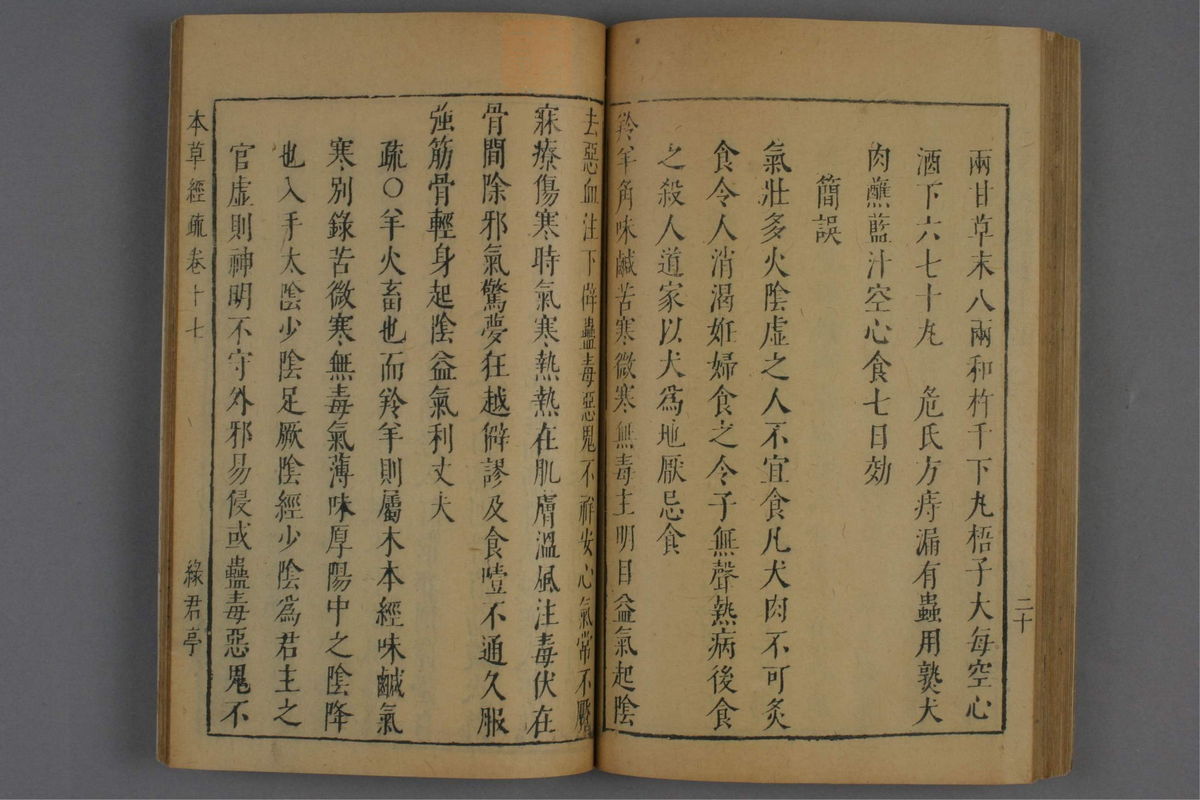 兩甘草末八兩和杵千下丸梧子大每空心
酒下六七十丸　危氏方痔漏有蟲用熟犬
肉蘸藍汁空心食七日効
簡誤
氣壯多火陰虛之人不宜食凡犬肉不可炙
食令人消渴妊婦食之令子無聲熱病後食
之殺人道家以犬為地厭忌食
羚羊角味鹹苦寒微寒無毒主明目益氣起陰
二十
去惡血注下辟蠱毒惡鬼不祥安心氣常不魘
寐療傷寒時氣寒熱熱在肌膚溫風注毒伏在
骨間除邪氣驚夢狂越僻謬及食噎不通久服
強筋骨輕身起陰益氣利丈夫
疏〇羊火畜也而羚羊則屬木本經味鹹氣
寒別錄苦微寒無毒氣薄味厚陽中之陰降
也入手太陰少陰足厥陰經少陰為君主之
官虛則神明不守外邪易侵或蠱毒惡鬼不
本草經疏卷十七
綠君亭